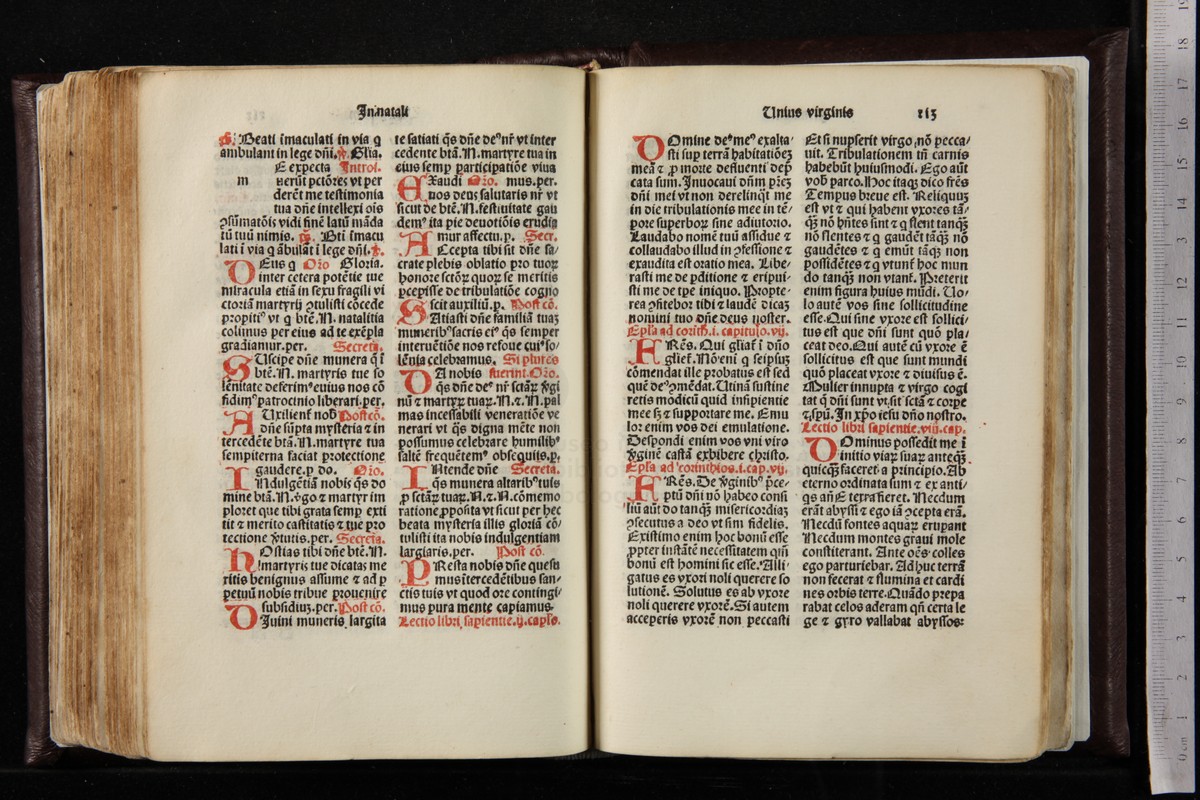 In natali
ps̄. Beati īmaculati in via q
ambulant in lege dn̄i. ℣. Gl̄ia.
E expecta Introi.
m uerūt pctōres vt per
derēt me testimonia
tua dn̄e intellexi oīs
ꝯsūmatōis vidi finē latū māda
tū tuū nimis. ps̄. Bt̄i īmacu
lati ī via q ābulāt ī lege dn̄i. ℣.
DEus q Or̄o Gloria.
inter cetera potētie tue
miracula etiā in sexu fragili vi
ctoriā martyrij ꝯtulisti cōcede
propiti⁹ vt q̄ btē. N. natalitia
colimus per eius ad te exēpla
gradiamur. per. Secreta.
SUscipe dn̄e munera q̄ ī
btē. N. martyris tue so
lēnitate deferim⁹ euius nos cō
fidim⁹ patrocinio liberari. per.
AUxilient̄ nob̄ Postcō.
dn̄e sūpta mysteria ⁊ in
tercedēte btā. N. martyre tua
sempiterna faciat protectione
gaudere. p do. Or̄o.
INdulgētiā nobis q̄s do
mine btā. N. v̄go ⁊ martyr im
ploret que tibi grata semꝑ exti
tit ⁊ merito castitatis ⁊ tue pro
tectione v̄tutis. per. Secreta.
HOstias tibi dn̄e btē. N.
martyris tue dicatas me
ritis benignus assume ⁊ ad ꝑ
petuū nobis tribue prouenire
subsidiuȝ. per. Post cō.
DIuini muneris largita
te satiati q̄s dn̄e de⁹ nr̄ vt inter
cedente btā. N. martyre tua in
eius semꝑ participatiōe viua
EXaudi Or̄o. mus. per.
nos deus salutaris nr̄ vt
sicut de btē. N. festiuitate gau
dem⁹ ita pie deuotiōis erudia
mur affectu. p. Secr.
ACcepta tibi sit dn̄e sa/
crate plebis oblatio pro tuoꝝ
honore sctōꝝ quoꝝ se meritis
ꝑcepisse de tribulatiōe cogno
scit auxiliū. p. Post cō.
SAtiasti dn̄e familiā tuaȝ
munerib⁹ sacris ei⁹ q̄s semper
interuētiōe nos refoue cui⁹ so/
lēnia celebramus. Si plures
DA nobis fuerint. Or̄o.
q̄s dn̄e de⁹ nr̄ sctāꝝ v̄gi
nū ⁊ martyꝝ tuaꝝ. N. ⁊. N. pal
mas incessabili veneratiōe ve
nerari vt q̄s digna mēte non
possumus celebrare humilib⁹
saltē frequētem⁹ obsequijs. p.
INtende dn̄e Secreta.
q̄s munera altarib⁹ tuis
ꝓ sctāꝝ tuaꝝ. N. ⁊. N. cōmemo
ratione ꝓposita vt sicut per hec
beata mysteria illis gloriā cō/
tulisti ita nobis indulgentiam
largiaris. per. Post cō.
PResta nobis dn̄e quesu
mus ītercedētibus san/
ctis tuis vt quod ore contingi/
mus pura mente capiamus.
Lectio libri sapientie. ij. capl̄o.
Unius virginis 213
DOmine de⁹ me⁹ exalta/
sti suꝑ terrā habitatiōeȝ
meā ⁊ ꝓ morte defluenti dep
cata sum. Inuocaui dn̄m p̄reȝ
dn̄i mei vt non derelinqt̄ me
in die tribulationis mee in tē/
pore superboꝝ sine adiutorio.
Laudabo nomē tuū assidue ⁊
collaudabo illud in ꝯfessione ⁊
exaudita est oratio mea. Libe/
rasti me de ꝑditione ⁊ eripui/
sti me de tꝑe iniquo. Propte/
rea ꝯfitebor tibi ⁊ laudē dicaȝ
nomini tuo dn̄e deus noster.
Epl̄a ad corith. i. capitulo. vij.
FRēs. Qui gliat̄ ī dn̄o
gliet̄. Nō eni q̄ seipsuȝ
cōmendat ille probatus est sed
quē de⁹ ꝯmēdat. Utinā sustine
retis modicū quid insipientie
mee sȝ ⁊ supportare me. Emu
lor enim vos dei emulatione.
Despondi enim vos vni viro
v̄ginē castā exhibere christo.
Epl̄a ad corinthios. i. cap. vij.
FRēs. De v̄ginib⁹ p̄ce/
ptū dn̄i nō habeo consi
liū aūt do tanq̄ȝ misericordiaȝ
ꝯsecutus a deo vt sim fidelis.
Existimo enim hoc bonū esse
ꝓpter instātē necessitatem qn̄i
bonū est homini sic esse. Alli/
gatus es vxori noli querere so
lutionē. Solutus es ab vxore
noli querere vxorē. Si autem
acceperis vxorē non peccasti
Et si nupserit virgo nō pecca/
uit. Tribulationem tn̄ carnis
habebūt huiusmodi. Ego aūt
vob̄ parco. Hoc itaqȝ dico frēs
Tempus breue est. Reliquuȝ
est vt ⁊ qui habent vxores tā/
q̄ȝ nō hn̄tes sint ⁊ q̄ flent tanq̄ȝ
nō flentes ⁊ q̄ gaudēt tāq̄ȝ nō
gaudētes ⁊ q̄ emūt tāq̄ȝ non
possidētes ⁊ q̄ vtunt̄ hoc mun
do tanq̄ȝ non vtant̄. Preterit
enim figura huius mūdi. Uo/
lo autē vos sine sollicitudine
esse. Qui sine vxore est sollici/
tus est que dn̄i sunt quō pla/
ceat deo. Qui autē cū vxore ē
sollicitus est que sunt mundi
quō placeat vxore ⁊ diuisus ē.
Mulier innupta ⁊ virgo cogi
tat q̄ dn̄i sunt vt sit sctā ⁊ corꝑe
⁊ spū. In xp̄o iesu dn̄o nostro.
Lectio libri sapientie. viij. cap.
DOminus possedit me ī
initio viaꝝ suaꝝ anteq̄ȝ
quicq̄ȝ faceret a principio. Ab
eterno ordinata sum ⁊ ex anti/
q̄s an̄ē terra fieret. Necdum
erāt abyssi ⁊ ego iā ꝯcepta erā.
Necdū fontes aquaꝝ erupant
Necdum montes graui mole
constiterant. Ante oēs colles
ego parturiebar. Adhuc terrā
non fecerat ⁊ flumina et cardi
nes orbis terre. Quādo prepa
rabat celos aderam qn̄ certa le
ge ⁊ gyro vallabat abyssos: